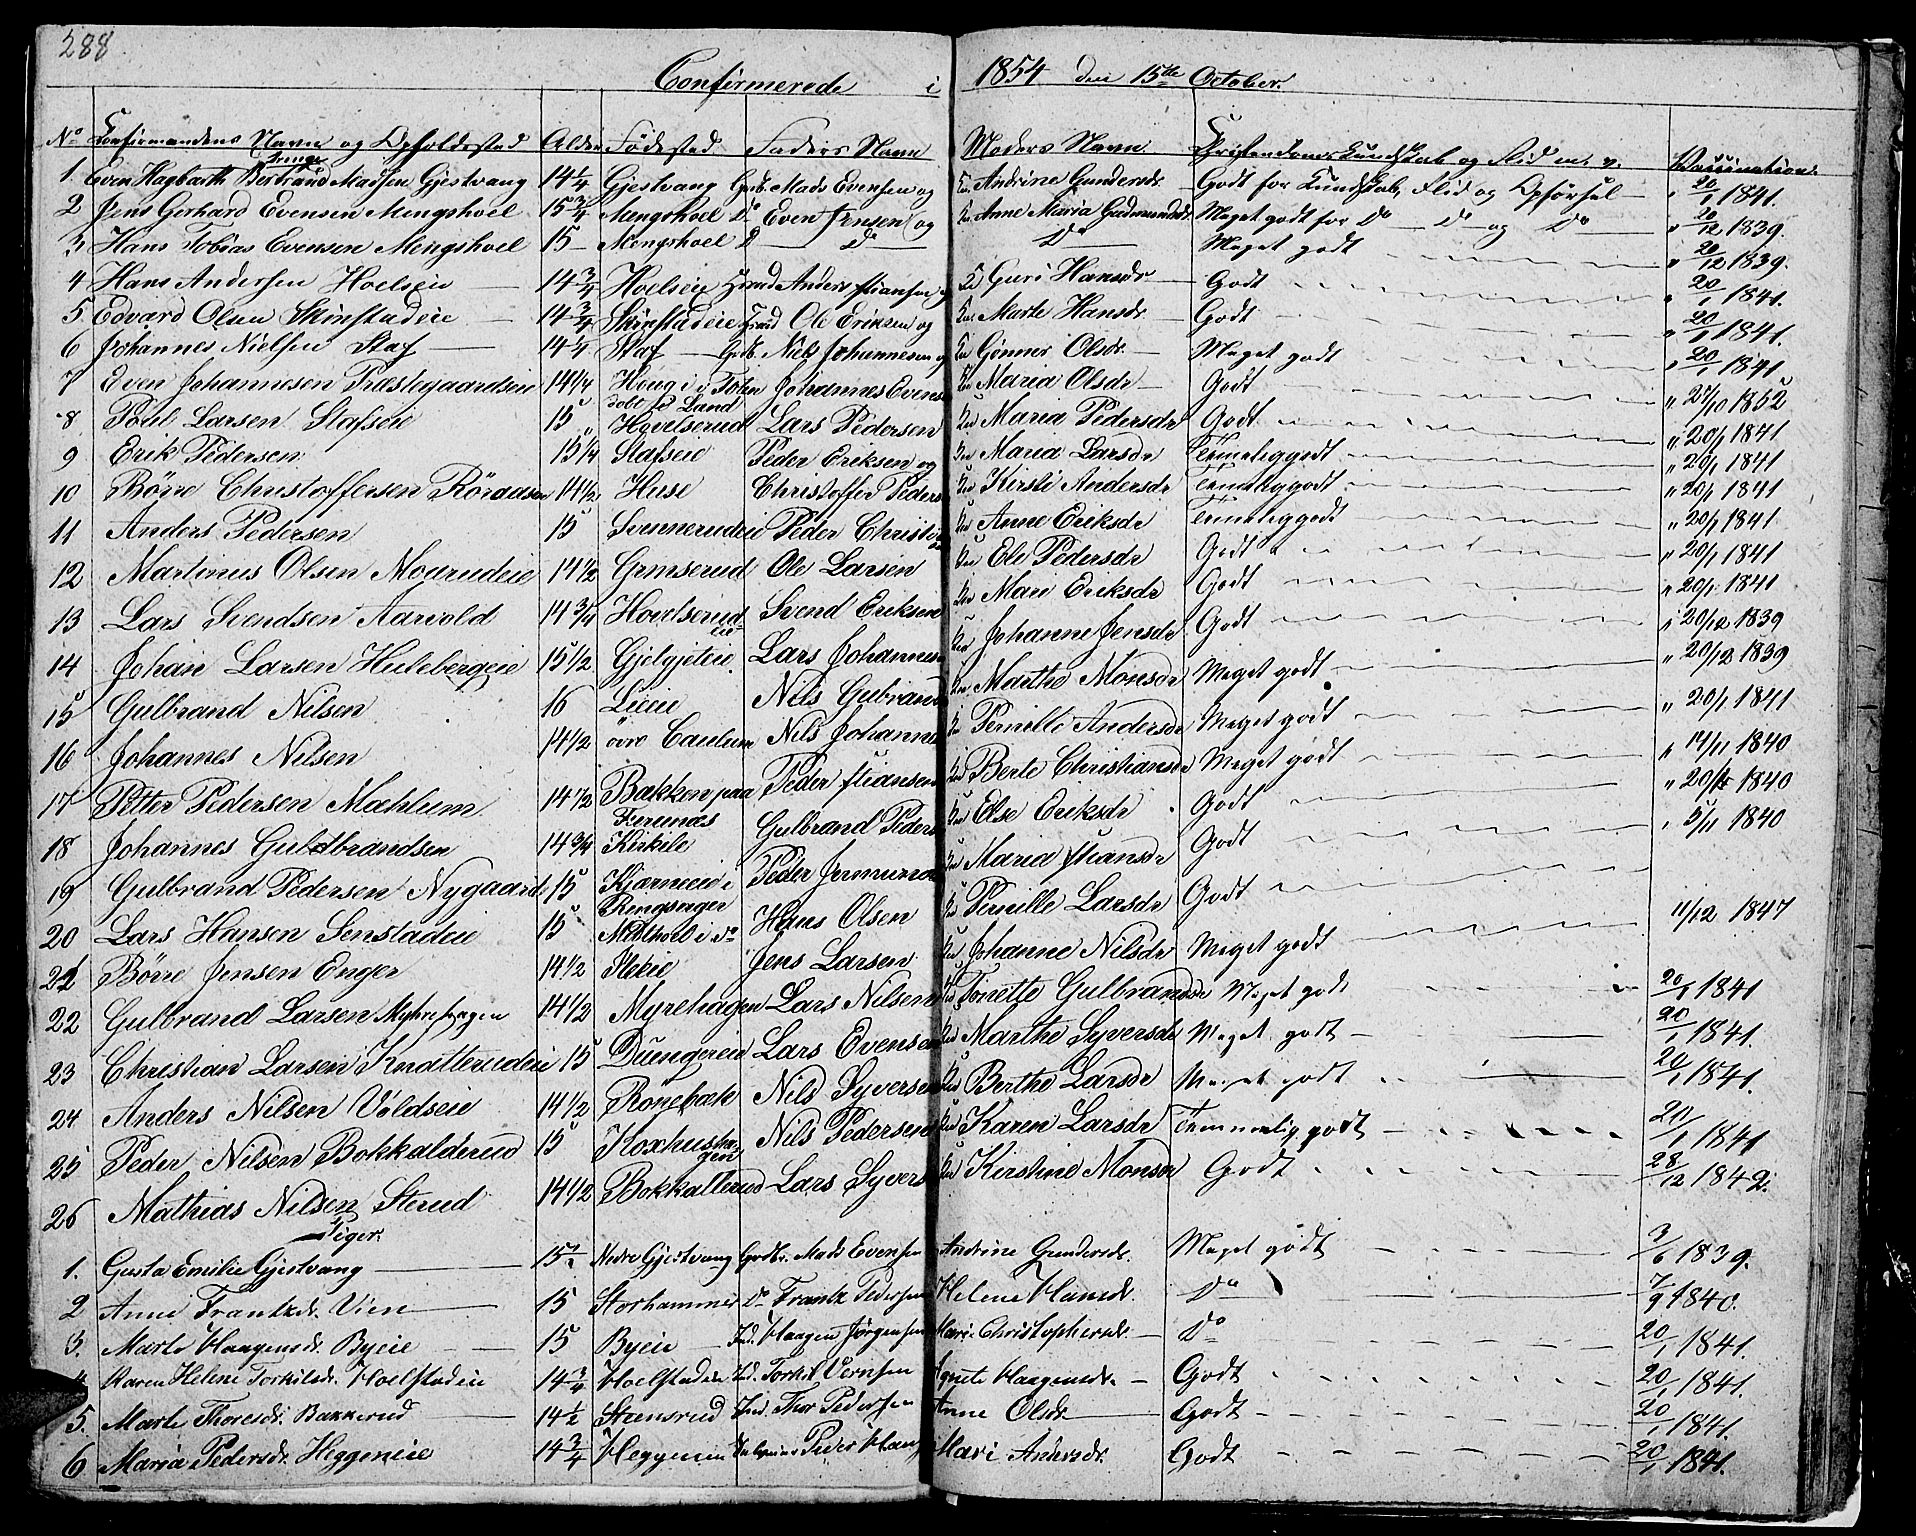 288
Confirmerede i 1854 den 15de October.
No Confirmandens Navn og Opholdssted Alder Fødested Faders Navn Moders Navn Christendomskundskab og Flid m. v. Vaccination
Drenge
1. Even Hagbarth Bertrand Madsen Gjestvang 14 1/4 Gjestvang Gdb. Mads Evensen og Andrine Gundersdr. Godt for Kundskab, Flid og Opførsel " 20/1 1841.
2 Jens Gerhard Evensen Mengshoel 15 3/4 Mengshoel Do Even Jensen og Anne Maria Gudmundsdr. Meget godt for Do Do og Do " 20/12 1839.
3 Hans Tobias Evensen Mengshoel 15 Mengshoel D Do Do Meget godt " 20/12 1839.
4 Hans Andersen Hoelseie 14 3/4 Hoelseie Anders Stiansen Guri Hansdr Godt " 20/1 1841.
5 Edvard Olsen Skinstadeie 14 3/4 Skinstadeie Ole Eriksen og Marte Hansdr Godt " 20/1 1841.
6 Johannes Nielsen Staf 14 1/4 Staf Gdb. Niels Johannesen og Gønner Olsdr. Meget godt " 20/1 1841
7 Even Johannesen Præstegaardseie 14 1/4 Houg i v Toten Johannes Evens Maria Olsdr Godt " 27/10 1852
8 Poul Larsen Stafseie 15 " dobt på Land Hovelserud Lars Pedersen Maria Pedersdr Godt " 20/1 1841
9 Erik Pedersen 15 1/4 Stafseie Peder Eriksen og Maria Larsdr Temeliggodt " 20/1 1841
10 Börre Christoffersen Röraasen 14 1/2 Huse Christoffer Peders Kirsti Andersdr Temeliggodt " 20/1 1841
11 Anders Pedersen 15 Svennerudeie Peder Christi Anne Eriksdr Temeliggodt " 20/1 1841
12 Martinus Olsen Moerudeie 14 1/2 Grmserud Ole Larsen Ele Pedersdr Godt " 20/1 1841
13 Lars Svendsen Aarvold 14 3/4 Hovelserud eie Svend Eriksen Mari Eriksdr Godt " 20/1 1841
14 Johan Larsen Hulebergeie 15 1/2 Gjelgjeteie Lars Johannes Johanne Jensdr Godt " 20/12 1839
15 Gulbrand Nilsen 16 Lieie Nils Gulbrand Marthe Monsdr Meget godt " 20/12 1839
16 Johannes Nilsen 14 1/2 övre Caulum Nils Johannes Pernille Andersdr Meget godt " 20/1 1841
17 Petter Pedersen Mæhlum 14 1/2 Bakken paa Furunæs Peder Stiansen Berte Christiansdr Meget godt " 14/11 1840
18 Johannes Guldbrandsen 14 3/4 Kirkile Gulbrand Peders Else Eriksdr Godt " 20/11 1840
19 Gulbrand Pedersen Nygaard 15 Kjærneeie i Ringsager Peder Jermunds Maria Stiansdr Godt " 5/11 1840
20 Lars Hansen Senstadeie 15 Midthoel i do Hans Olsen Pernille Larsdr Godt 11/12 1847
21 Börre Jensen Enger 14 1/2 Stekie Jens Larsen Johanne Nilsdr Meget godt
22 Gulbrand Larsen Myhrehagen 14 1/2 Myrehagen Lars Nilsen Tonette Gulbrandsdr Meget godt 20/1 1841
23 Christian Larsen Knatterudeie 15 Dungereie Lars Evensen Marthe Syversdr Meget godt 20/1 1841.
24 Anders Nilsen Voldseie 14 1/2 Rönebæk Nils Syversen Berthe Larsdr Meget godt 20/1 1841.
25 Peder Nilsen Bokkalderud 15 Koxhushagen Nils Pedersen Karen Larsdr Temmelig godt 20/1 1841
26 Mathias Nilsen Sterud 14 1/2 Bokkallerud Lars Syvers Kirstine Monsdr Godt 28/12 1842.
Piger.
1. Gusta Emilie Gjestvang 15 Nedre Gjestvang Gdb. Mads Evensen Andrine Gundersdr. Meget godt 3/6 1839.
2 Anne Frantzdr. Vien 15 Storhammer Do Frantz Pedersen Helene Hansdr. Do 7/9 1840.
3. Marte Haagensdr. Byeie 15 Byeie Ind. Haagen Jørgensen Mari Christophersdr. Do 20/1 1841.
4 Karen Helene Torkilsdr. Hoelstadeie 14 3/4 Hoelstadeie Ind. Torkil Evensen Agnete Haagensdr. Godt 20/1 1841.
5. Marte Thoresdr. Bakkerud 14 1/2 Steensrud Ind. Thor Pedersen Anne Olsdr. Godt 20/1 1841.
6 Maria Pedersdr. Heggeneie 14 3/4 Heggeneie Peder Hans Mari Andersdr. Godt 20/1 1841.